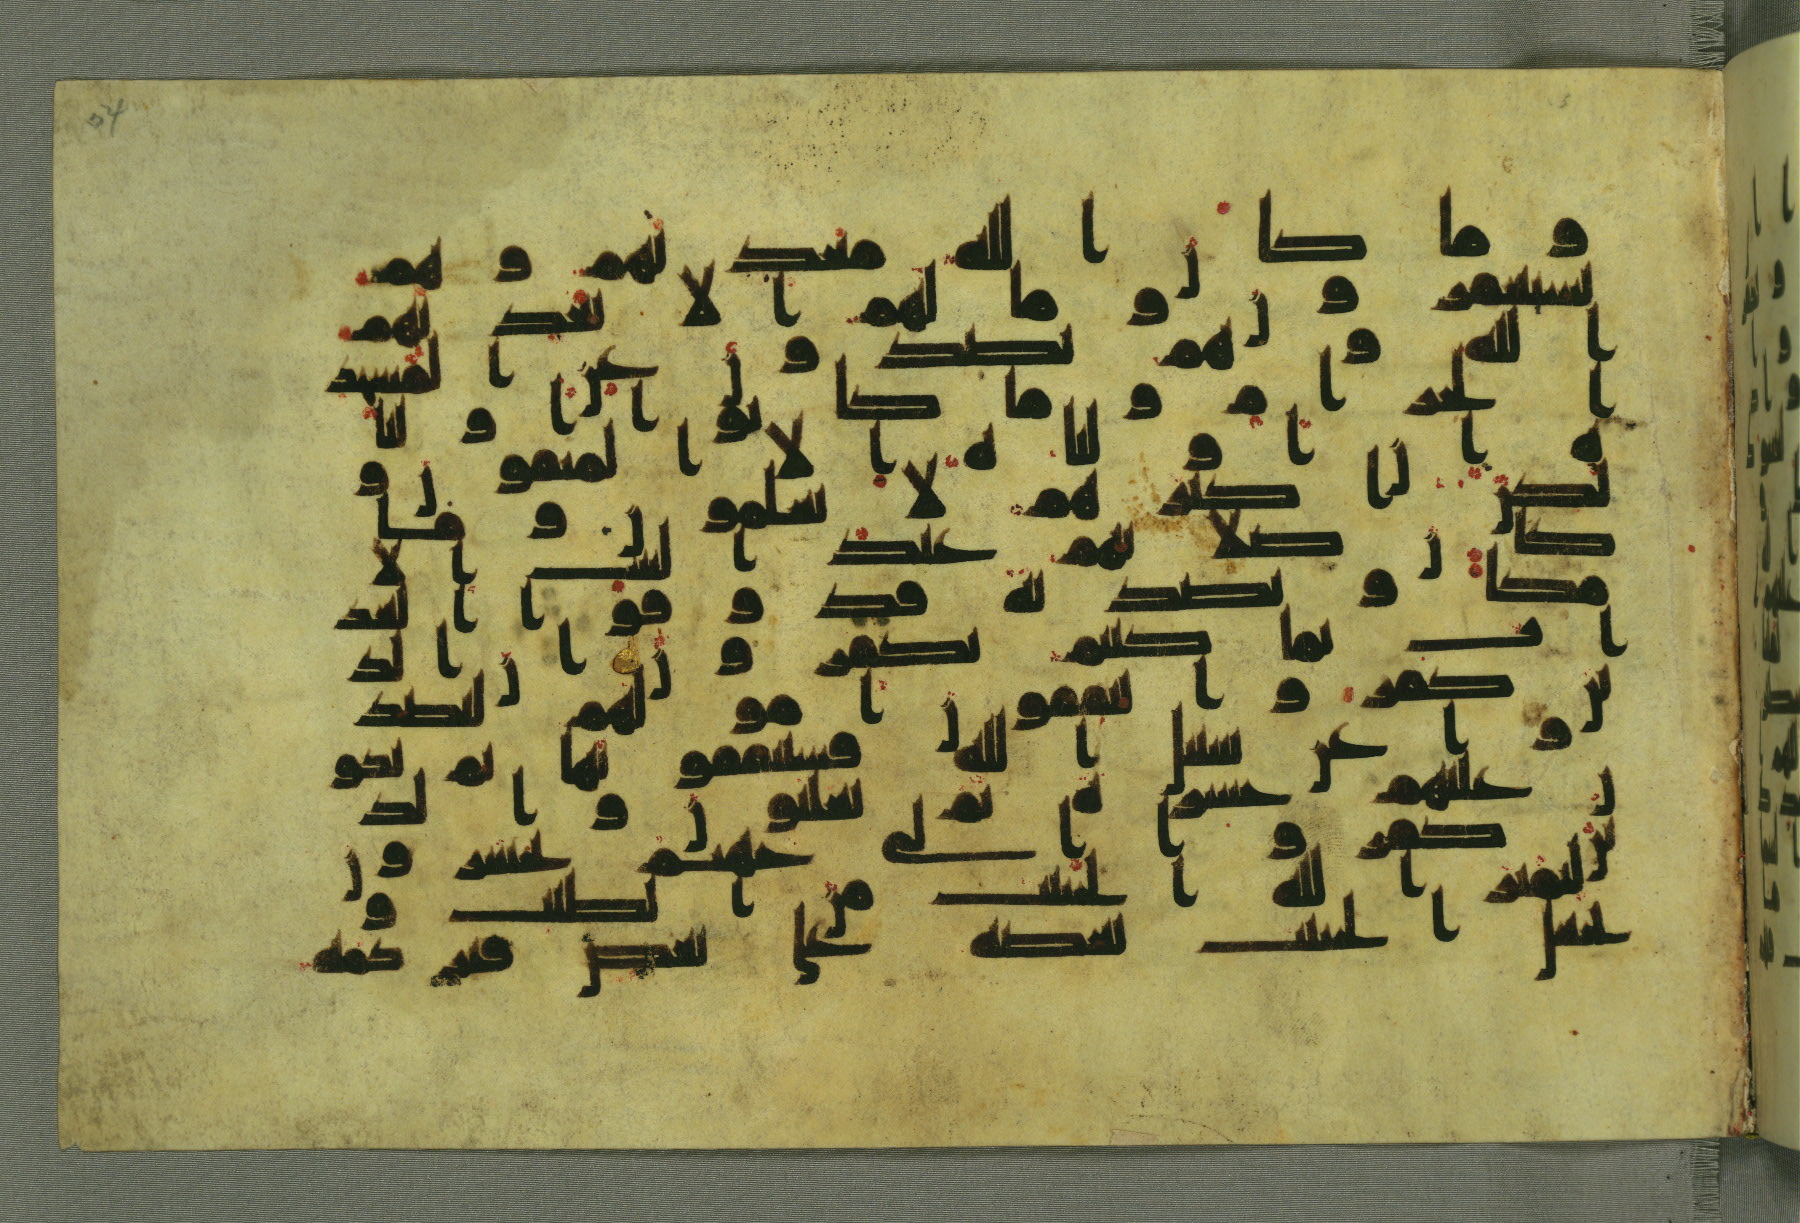 وما كان الله معذبهم وهم
يستغفرون وما لهم الا يعذبهم
الله وهم يصدون عن المسجد
الحرام وما كانوا اوليا
ه ان اوليا ه الا المتقون و
لكن اكثرهم لا يعلمون وما
كان صلاتهم عند البيت الا
مكا وتصديه فذوقوا العذ
اب بما كنتم تكفرون ان الذ
ين كفروا ينفقون امولهم ليصد
وا عن سبيل الله فسينفقونها ثم تكو
ن عليهم حسره ثم يغلبون والذ
ين كفروا الى جهنم يحشرون
ليميز الله الخبيث من الطيب و
يجعل الخبيث بعضه على بعض فيركمه